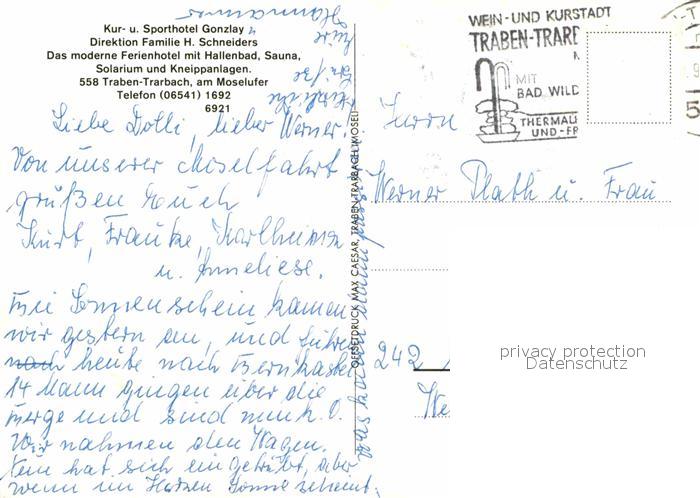 Kur- u. Sporthotel Gonzlay
Direktion Familie H. Schneiders
Das moderne Ferienhotel mit Hallenbad, Sauna,
Solarium und Kneippanlagen.
558 Traben-Trarbach, am Moselufer
Telefon (06541) 1692
6921
Liebe Dolli, lieber Werner!
Von unserer Moselfahrt
grüßen Euch
Kurt, Frauke, Karlheinz
u. Anneliese.
Bei Sonnenschein kamen
wir gestern an, und fuhren
noch heute nach Bernkastel
14 Mann gingen über die
Berge und sind nun k. O.
Wir nahmen den Wagen.
hat sich eingetrübt, aber
wenn im Herzen Sonne scheint.
OFFSETDRUCK MAX CAESAR, TRABEN-TRARBACH (MOSEL)
WEIN- UND KURSTADT
TRABEN-TRARB
MIT
BAD WILD
THERMAL
UND-FR
Herrn
Werner Plath u. Frau
242
We
privacy protection
Datenschutz